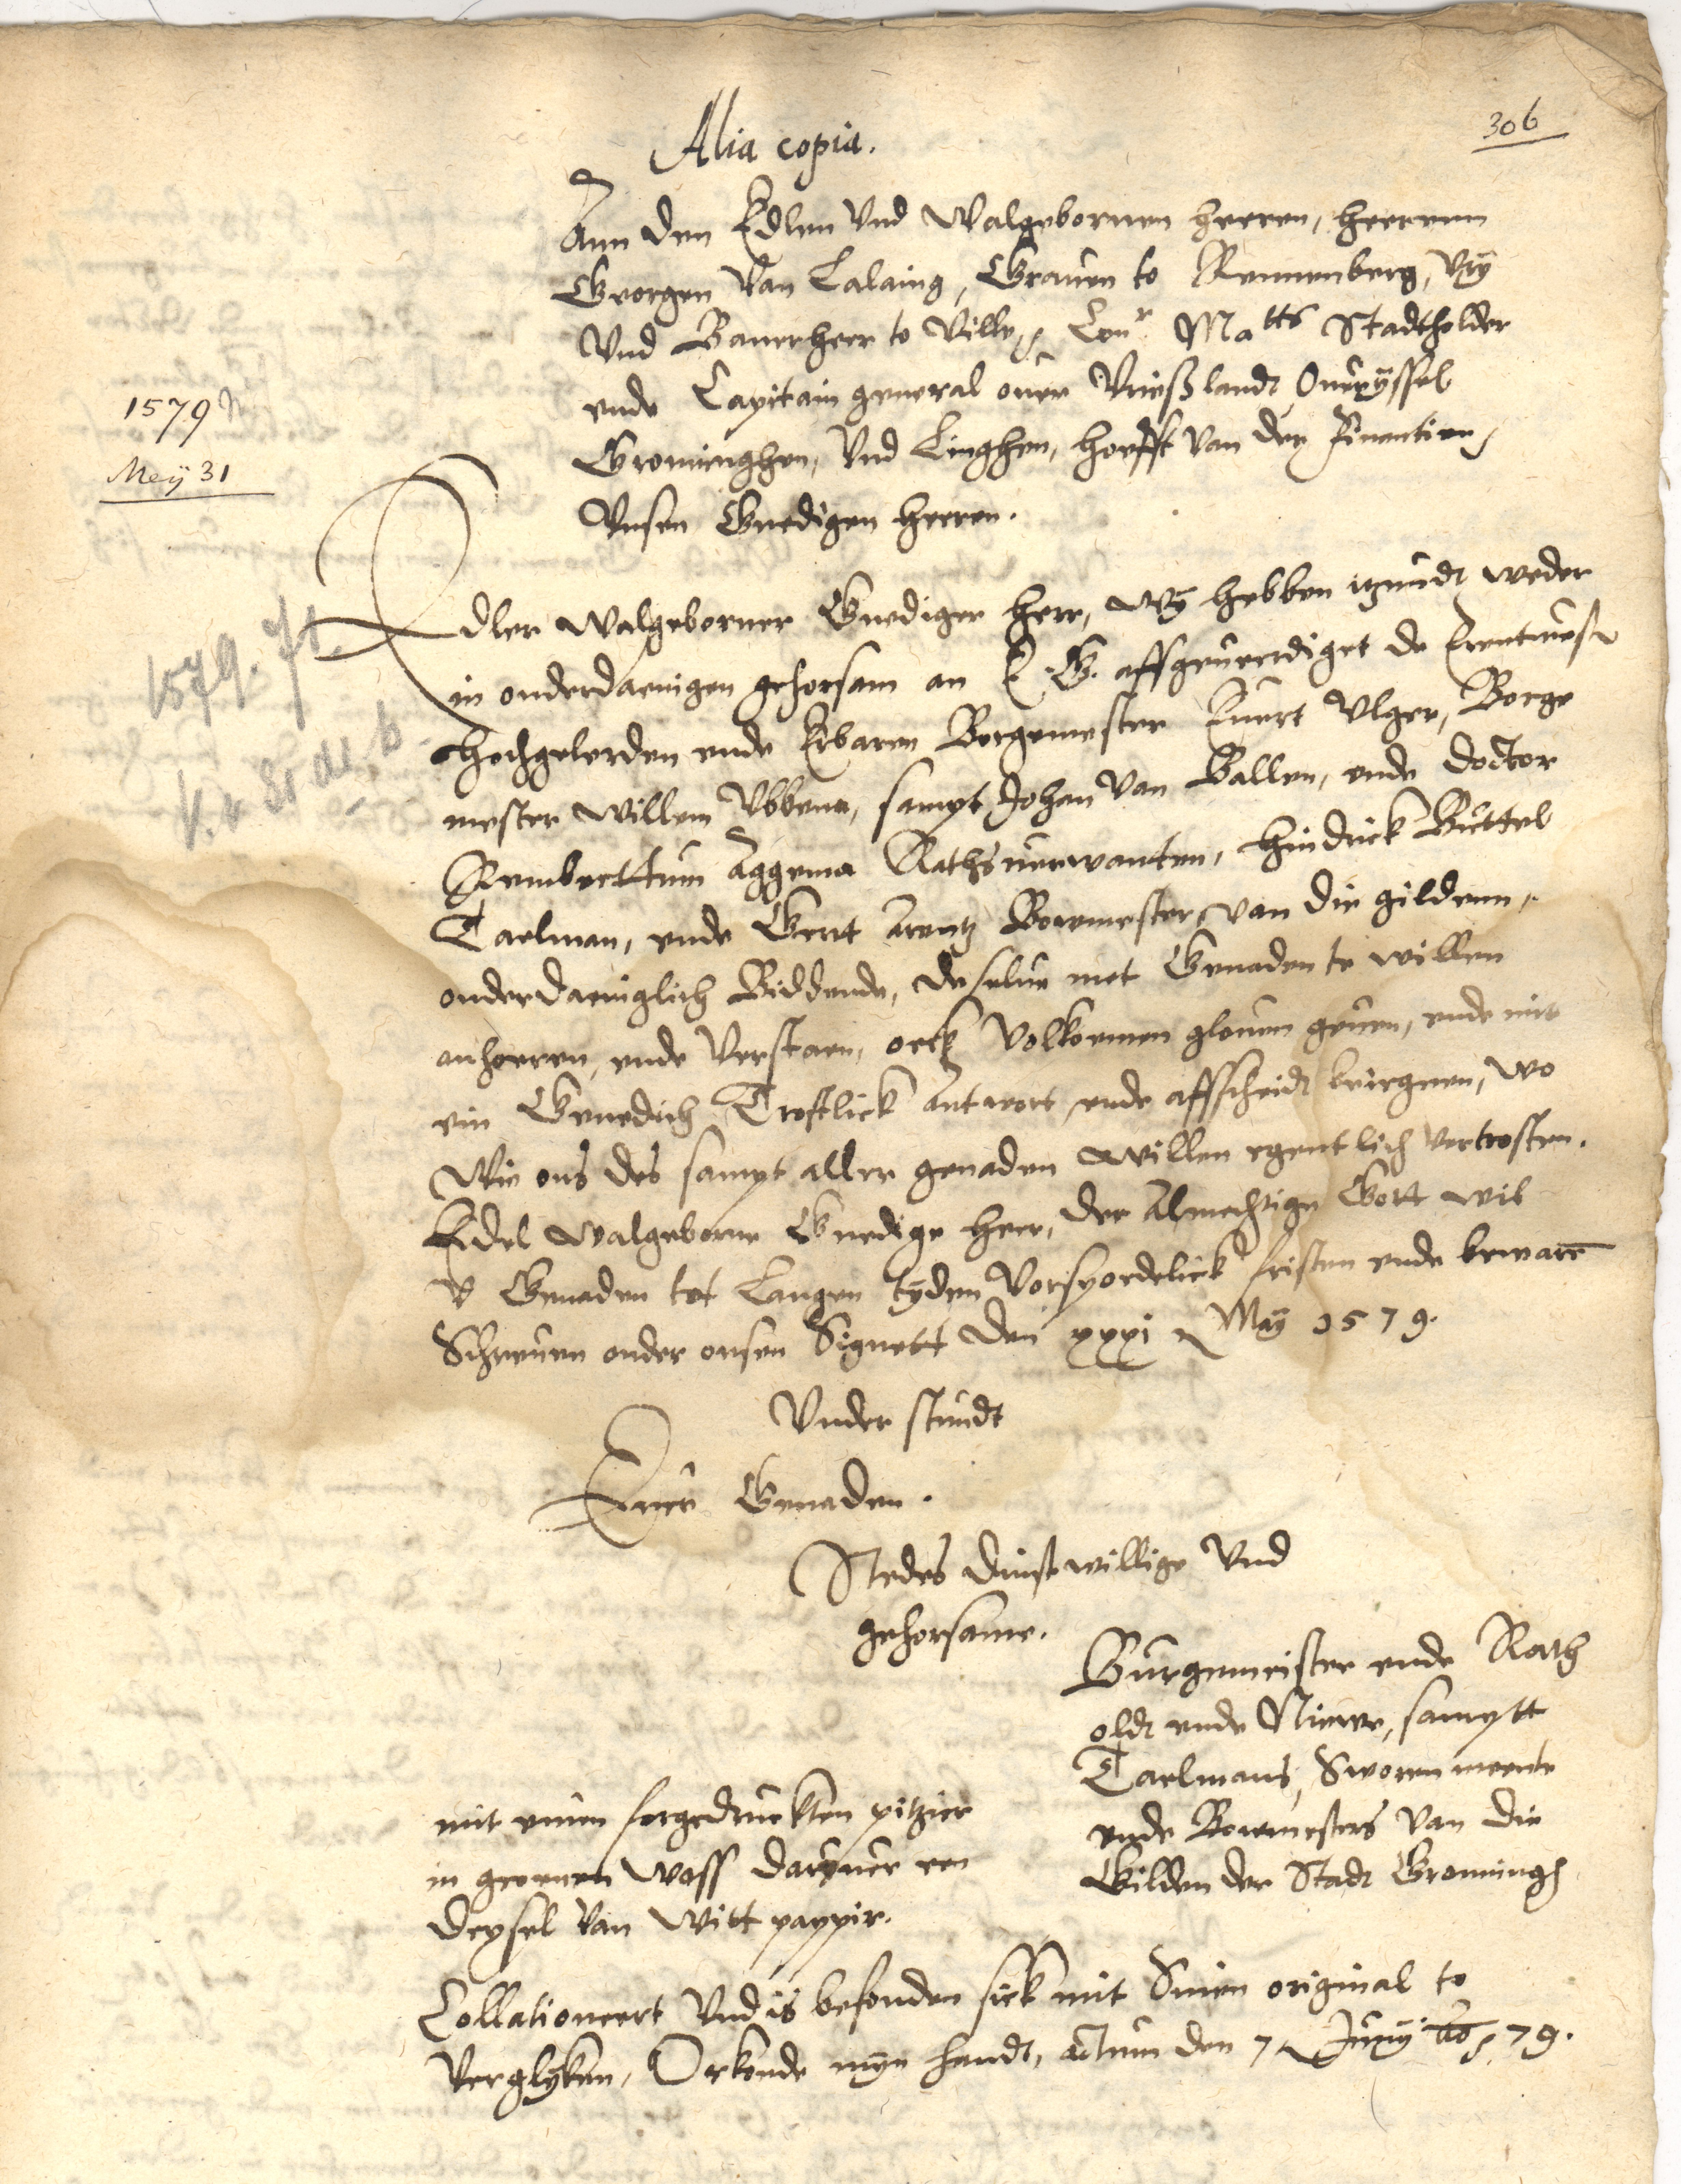 306
Alia copia.
Ann den Edlen Vnd Walgebornen heeren, heerenn
Georgen Van Lalaing, Grauen to Rennenberg, Vrÿ
Vnd Banerheer to Ville, Con.r Ma.tts Stadtholder
ende Capitain general ouer Vrießlandt Oueryssel
Groeninghen, Vnd Linghen, hoefft van der Finantien,
Vnsen Gnedigen heeren.
1579
Meÿ 31
Edler Walgeborner Gnediger herr, Wÿ hebben itzundt weder
in onderdaenigen gehorsam an E. G. affgeueerdiget de Erentueste
hochgelerden ende Erbaren Borgemester Euert Vlger, Borge
mester Willem Vbbena, sampt Johan Van Ballen, ende doctor
Rembertum Aggema Rathsuerwanten, Hindrick Buttel
Taelman, ende Geert Arentz Bowmester van die gildenn,
onderdaeniglich Biddende, deselue met Genaden te willen
anhoeren, ende Verstaen, oeck Volkoemen glouen geuen, ende mit
ein Genedich Trostlick Antwort ende affscheidt beiegnen, wo
Wie ons des sampt aller genaden Willen egentlich vertrosten.
Edel Walgeborne Gnedige Heer, der Almechtige Gott wil
V Genaden tot Langen tÿden Vorspoedelick fristen ende bewarē
Schreuen onder onsen Signett den xxxi Maÿ 1579.
1579. 31.
Vnder stundt
Euer Genaden.
Stedes dinstwillige Vnd
gehorsame.
Burgemeister ende Rath
oldt ende Niewe, sampt
Taelmans, Sworen meente
ende Bowmesters Van die
Gilden der Stadt Groningh
mit einen forgedruckten pitzier
in groenen Wass daröuer een
dexsel van Witt pappir.
Collationeert Vnd is befonden sick mit Sinen original to
Verglÿken, Orkonde mÿn handt, Actum den 7 Junÿ ao. 79.